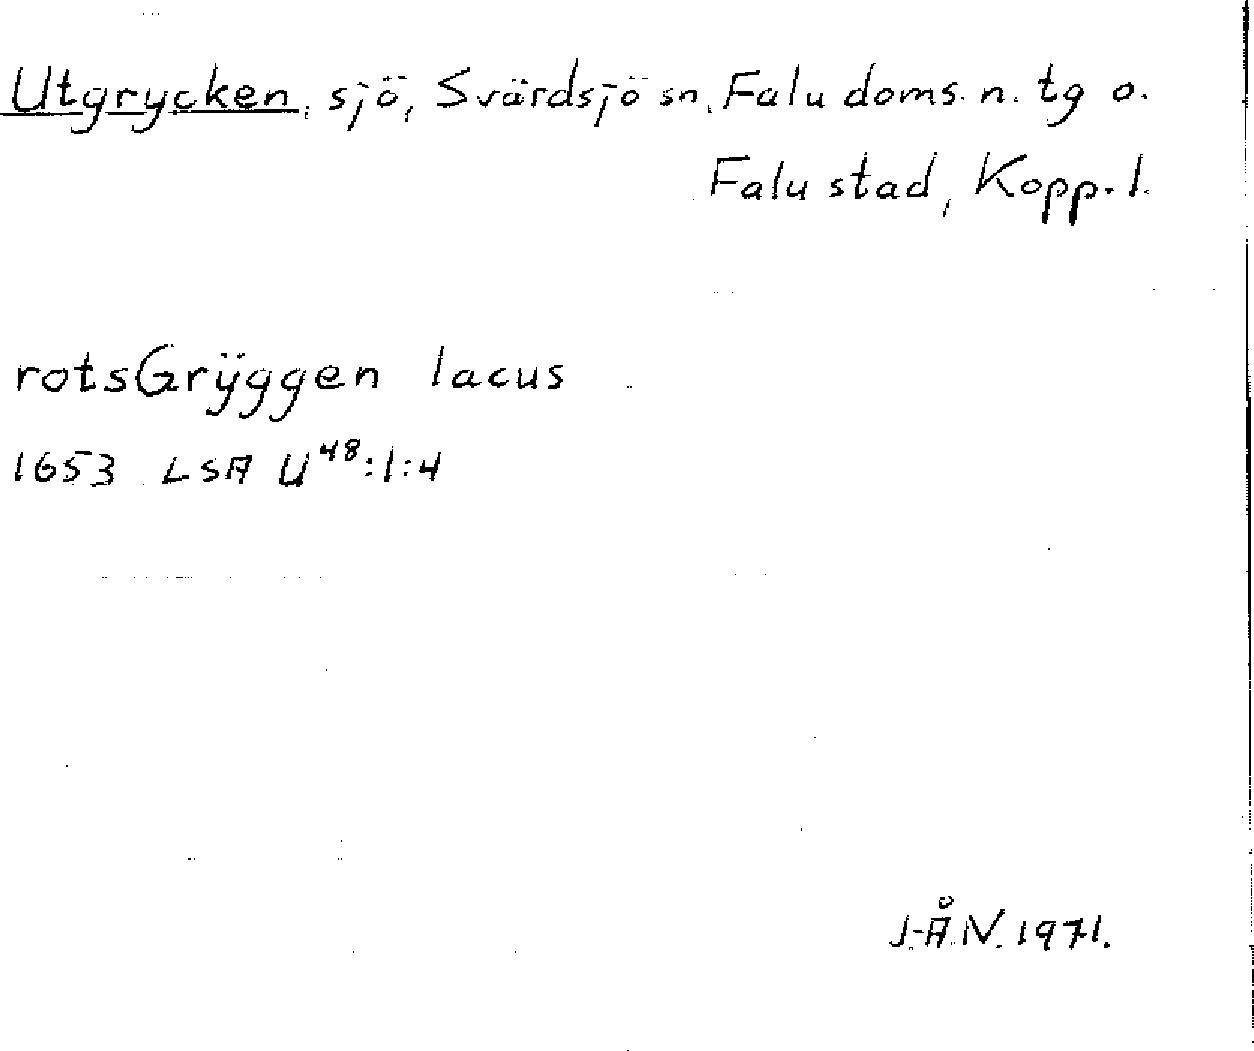 Utgrycken, sjö, Svärdsjö sn, Falu doms. n. tg o.
Falu stad, Kopp. l.
rotsGrÿggen lacus
1653 LSA U⁴⁸:1:4
J-Å.N. 1971.